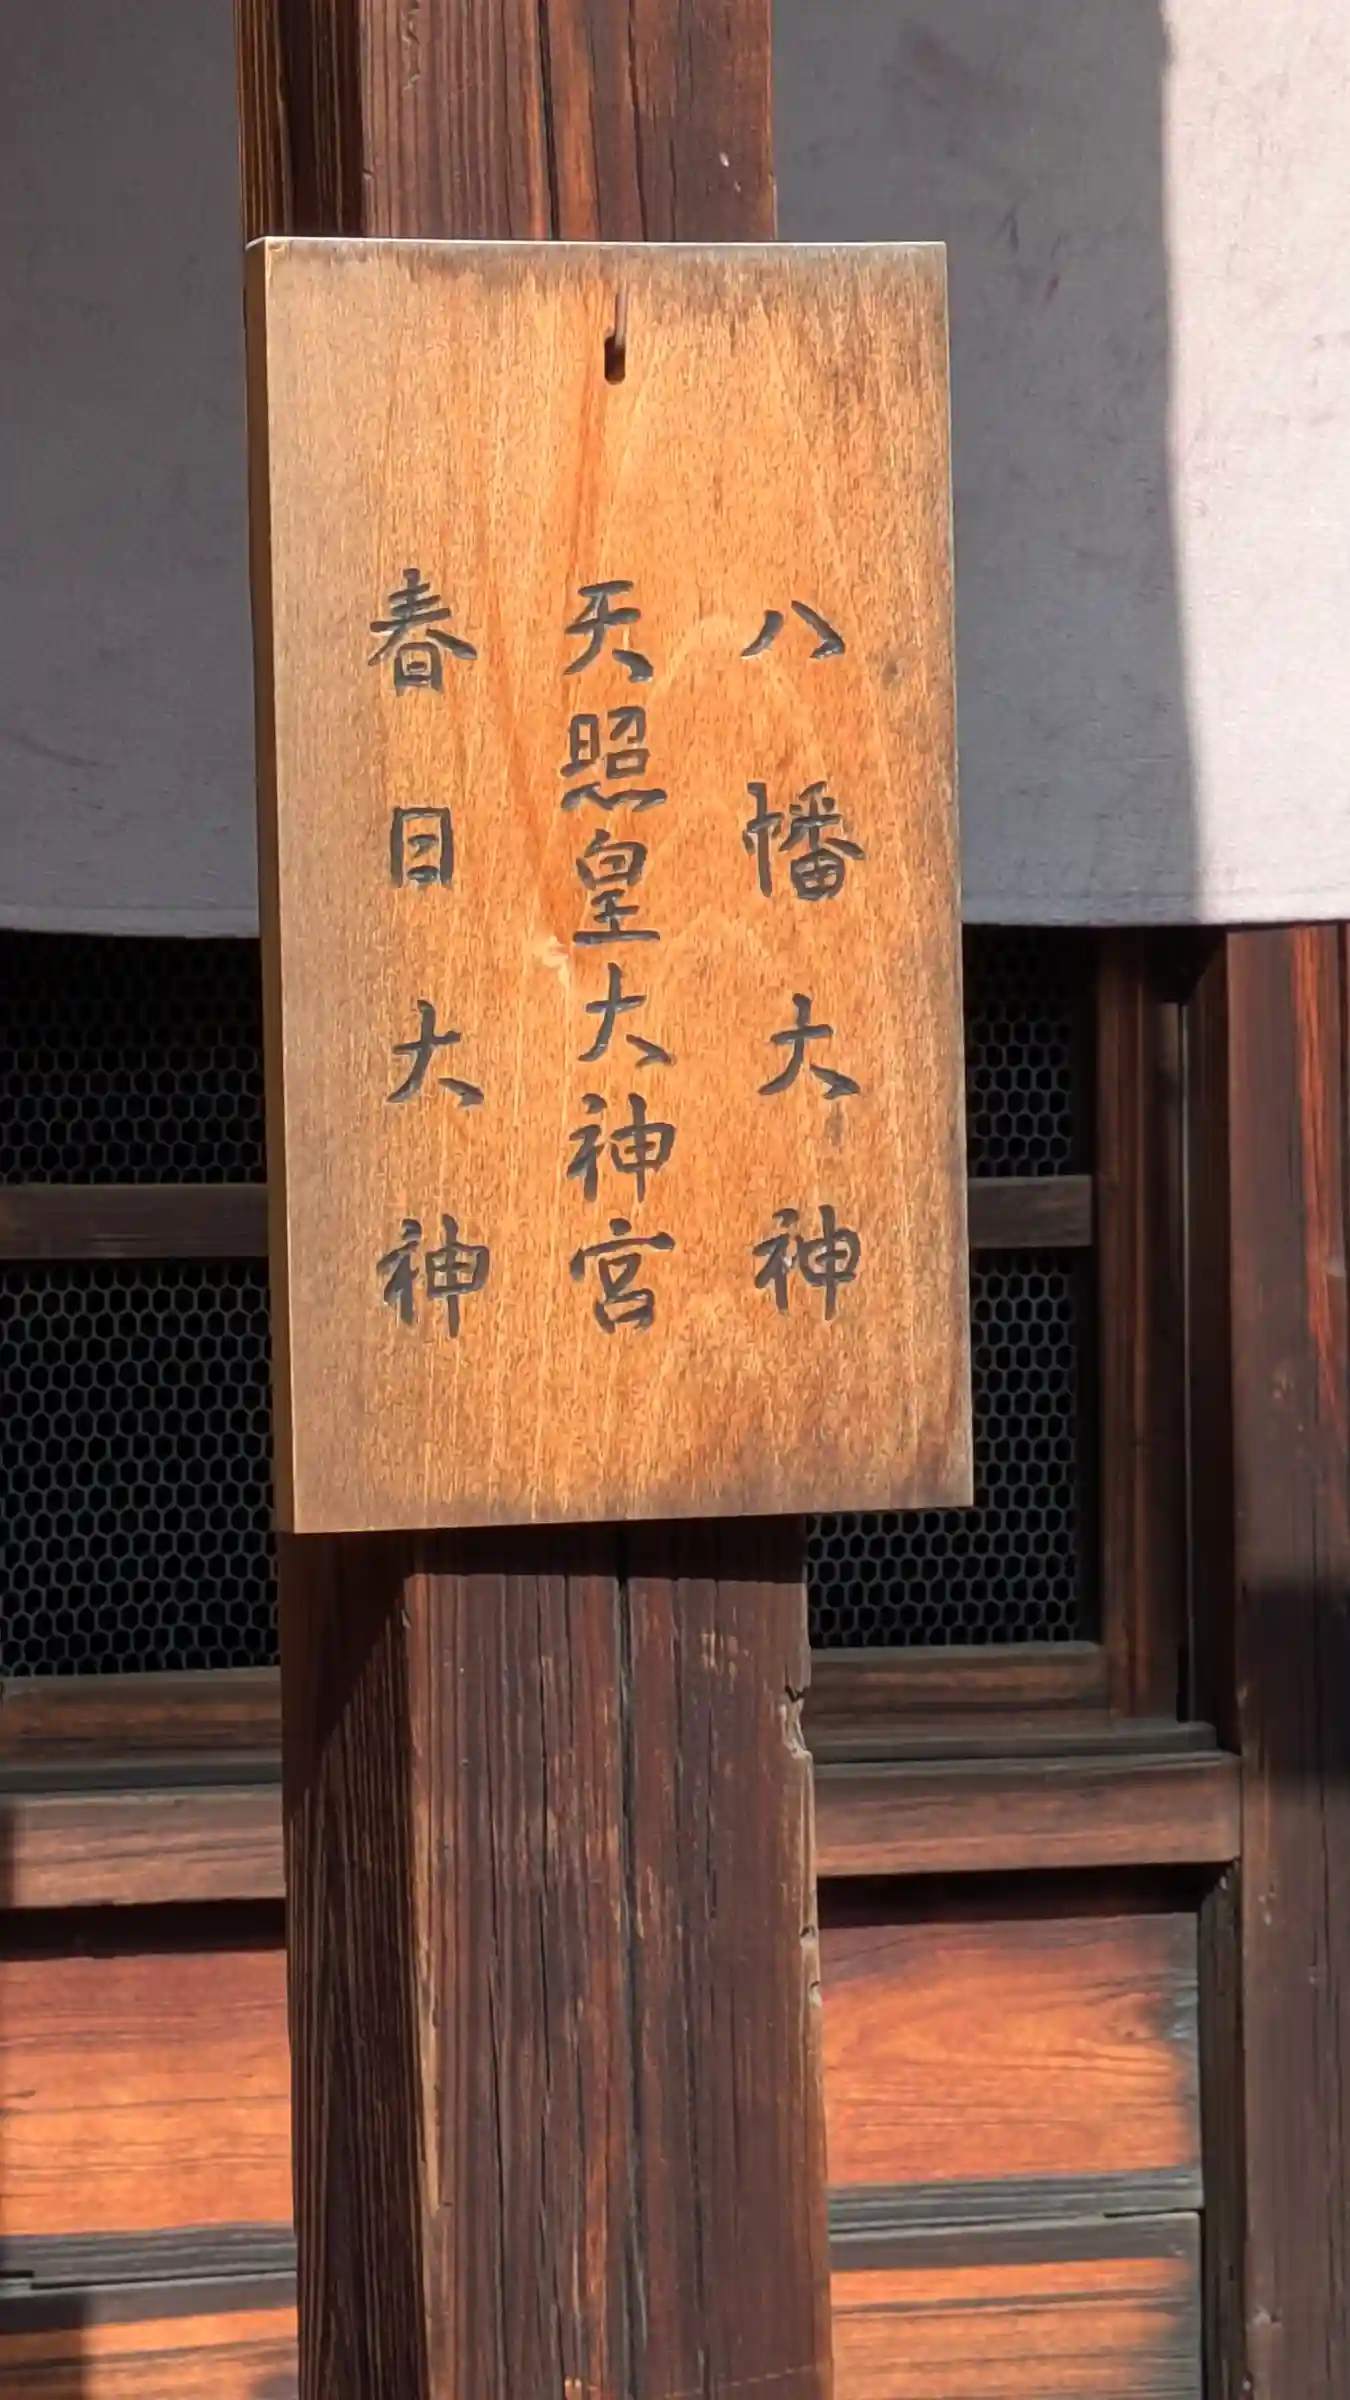 八幡大神
天照皇大神宮
春日大神